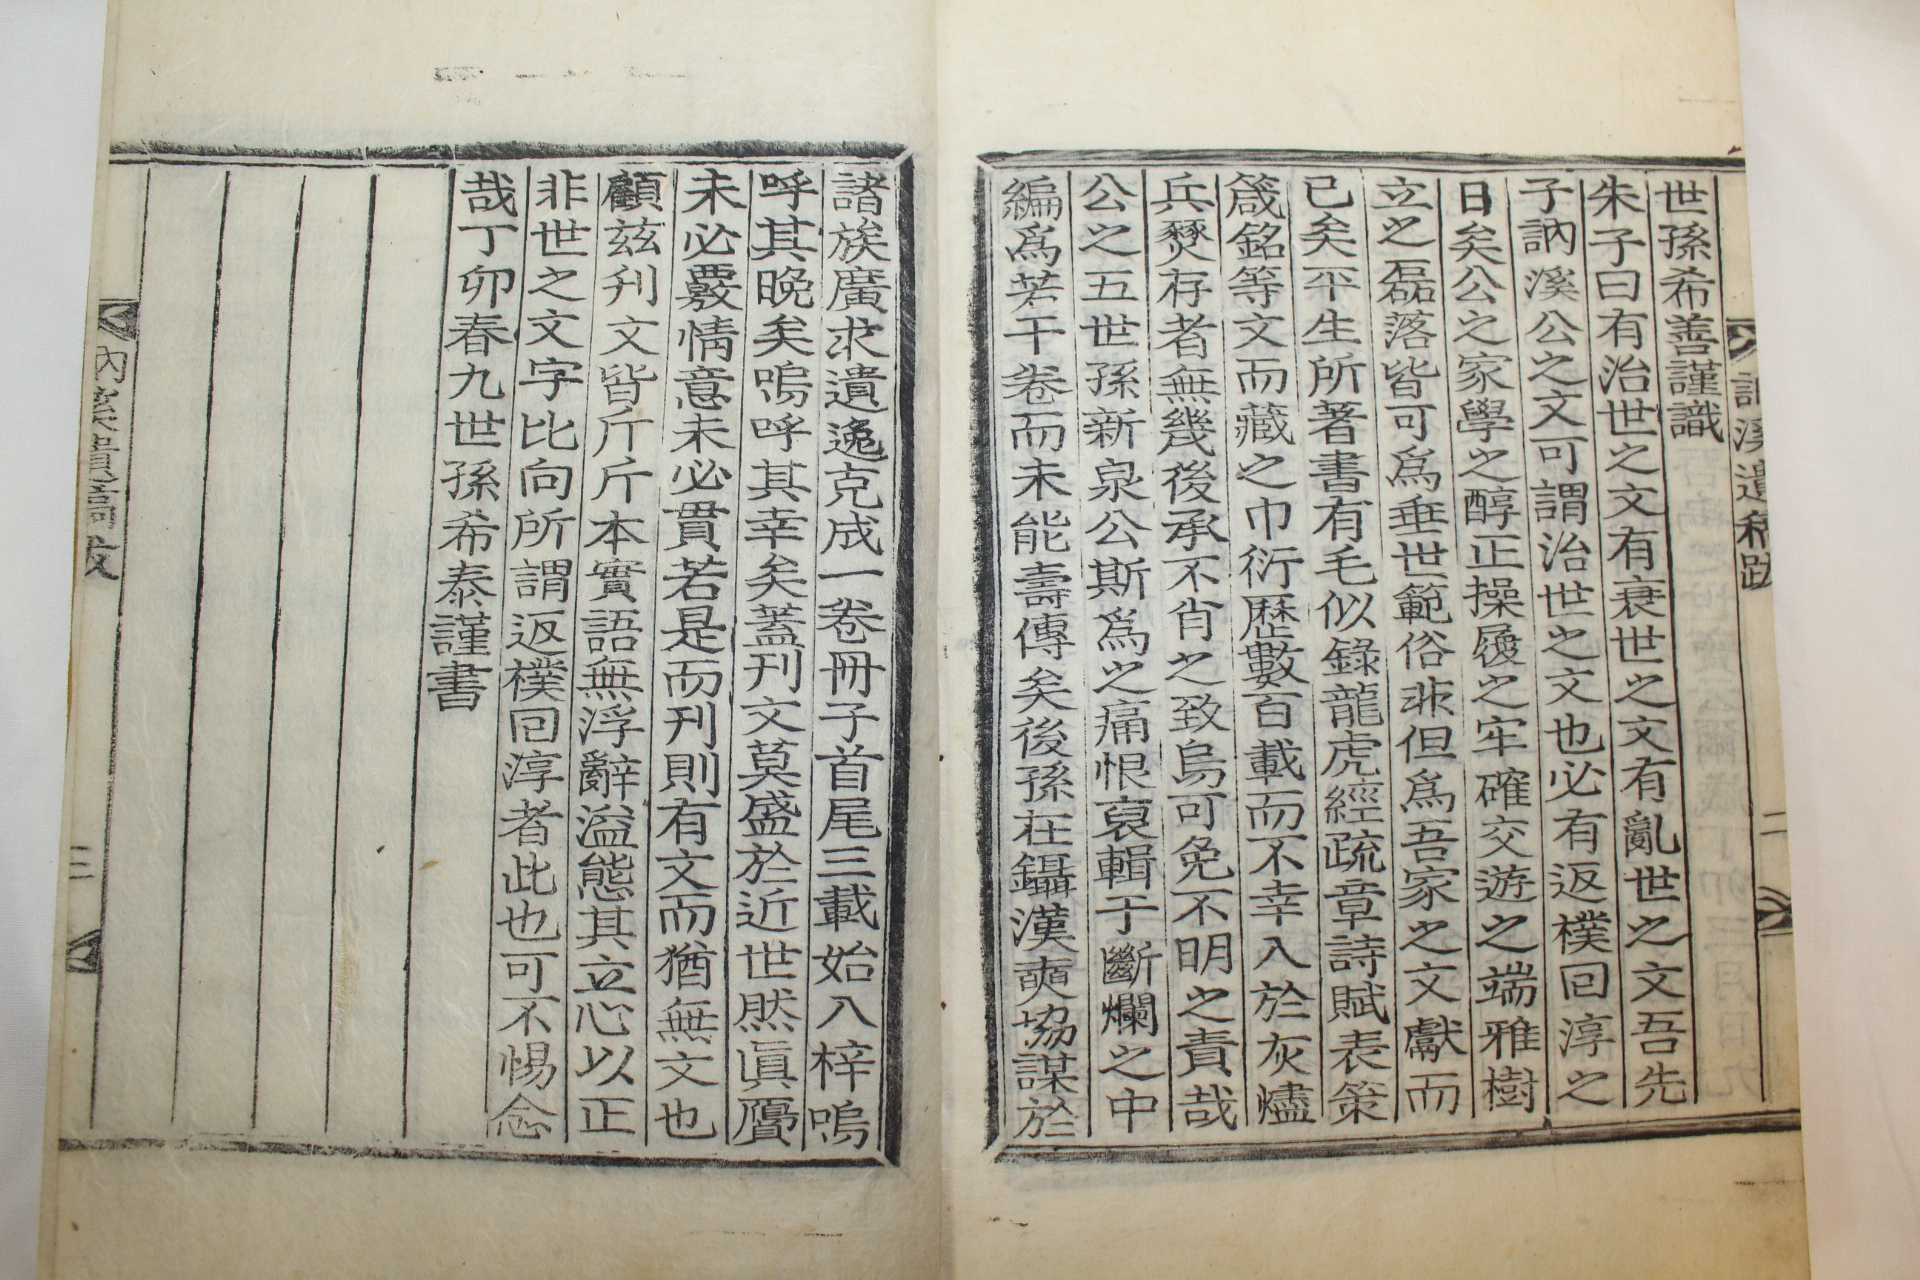 訥溪遺稿跋
二
世孫希善謹識
朱子曰有治世之文有衰世之文有亂世之文吾先
子訥溪公之文可謂治世之文也必有返樸回淳之
日矣公之家學之醇正操履之牢確交遊之端雅樹
立之磊落皆可爲垂世範俗非但爲吾家之文獻而
已矣平生所著書有毛似錄龍虎經疏章詩賦表策
箴銘等文而藏之巾衍歷數百載而不幸入於灰燼
兵燹存者無幾後承不肖之致烏可免不明之責哉
公之五世孫新泉公斯爲之痛恨裒輯于斷爛之中
編爲若干卷而未能壽傳矣後孫在鑷漢奭協謀於
諸族廣求遺逸克成一卷冊子首尾三載始入梓嗚
呼其晚矣嗚呼其幸矣蓋刊文莫盛於近世然眞贋
未必覈情意未必貫若是而刊則有文而猶無文也
顧茲刋文皆斤斤本實語無浮辭溢態其立心以正
非世之文字比向所謂返樸回淳者此也可不惕念
哉丁卯春九世孫希泰謹書
訥溪遺稿跋
三